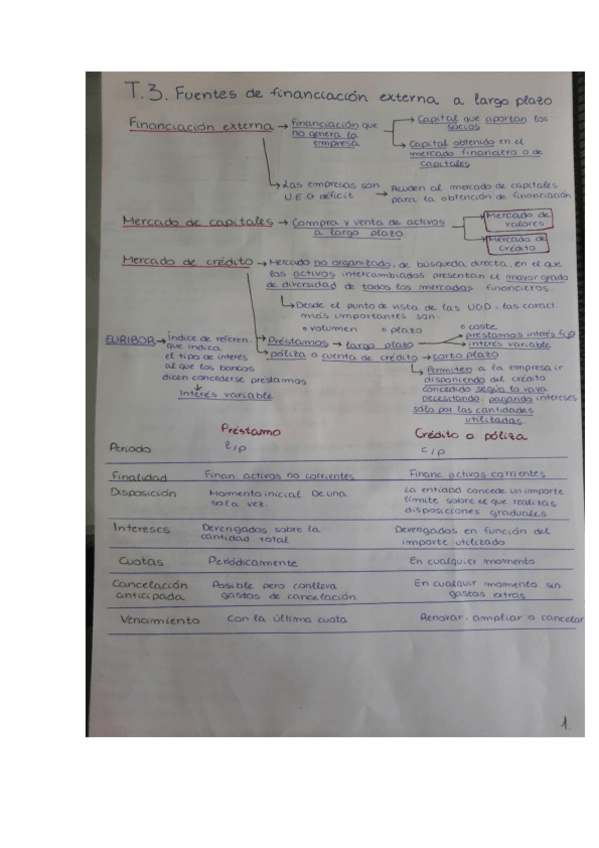 T.3. Fuentes de financiación externa a largo plazo
Financiación externa → Financiación que no genera la empresa
→ Capital que aportan los socios
→ Capital obtenido en el mercado financiero o de capitales
→ Las empresas son U.E.O déficit → Acuden al mercado de capitales para la obtención de financiación
Mercado de capitales → Compra y venta de activos a largo plazo
→ Mercado de valores
→ Mercado de crédito
Mercado de crédito → Mercado no organizado, de búsqueda directa, en el que
los activos intercambiados presentan el mayor grado
de diversidad de todos los mercados financieros.
→ Desde el punto de vista de las UGD, las caract.
más importantes son:
o volumen o plazo o coste
EURIBOR → Índice de referen.
que indica
el tipo de interés
al que los bancos
dicen concederse prestamos
↓
Interés variable
→ Préstamos → largo plazo → préstamos interés fijo
→ interés variable
→ póliza o cuenta de crédito → corto plazo
→ Permiten a la empresa ir
disponiendo del crédito
concedido según lo vaya
necesitando, pagando intereses
sólo por las cantidades
utilizadas.
Préstamo Crédito o póliza
Periodo l/p c/p
Finalidad Finan. activos no corrientes Financ activos corrientes
Disposición Momento inicial De una sola vez La entidad concede un importe límite sobre el que realitas disposiciones graduales
Intereses Devengados sobre la cantidad total Devengados en función del importe utilizado
Cuotas Periódicamente En cualquier momento
Cancelación anticipada Posible pero conlleva gastos de cancelación En cualquir momento sin gastos extras
Vencimiento Con la última cuota Renovar, ampliar o cancelar
1